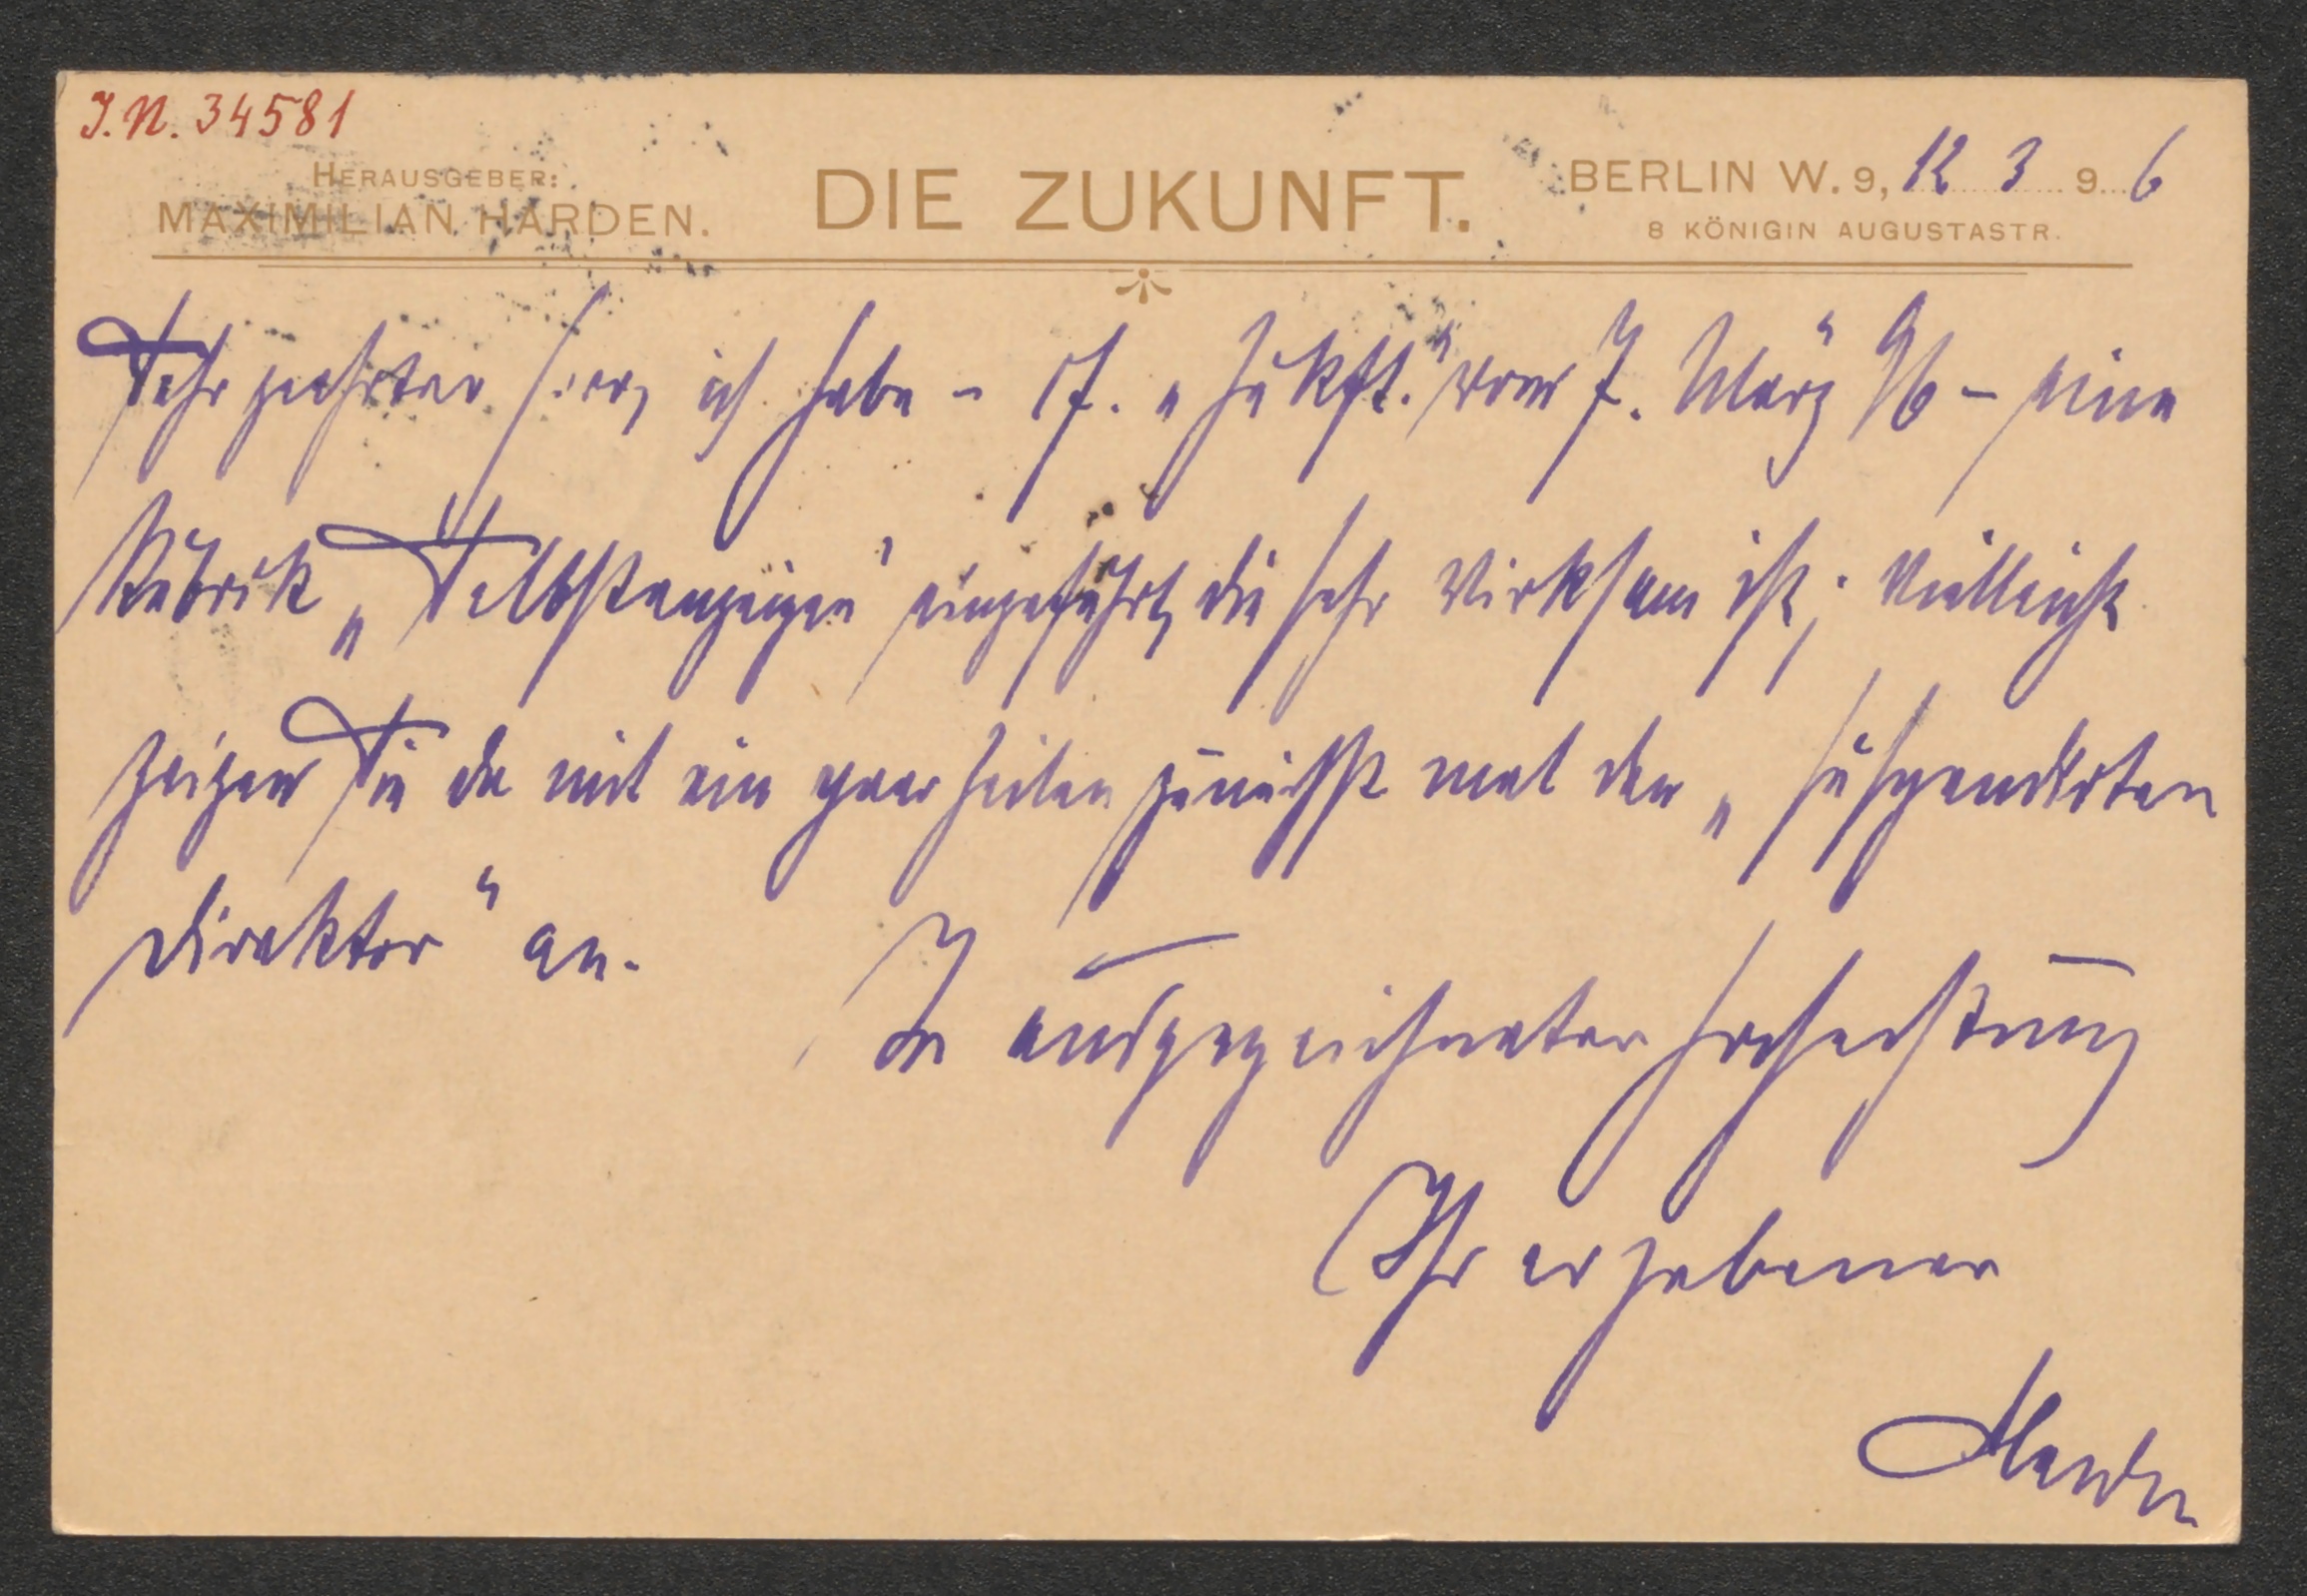 J.N. 34581
HERAUSGEBER:
MAXIMILIAN HARDEN.
DIE ZUKUNFT.
BERLIN W. 9, 12 3 9 6
8 KÖNIGIN AUGUSTASTR.
Sehr geehrter Herr, ich habe – cf. „Zukft.“ vom 7. März 96 – eine
Rubrik „Selbstanzeigen“ eingeführt, die sehr wirksam ist; vielleicht
zeigen Sie da mit ein paar Zeilen zunächst mal den „suspendirten
Direktor“ an.
In ausgezeichneter Hochachtung
Ihr ergebener
Harden